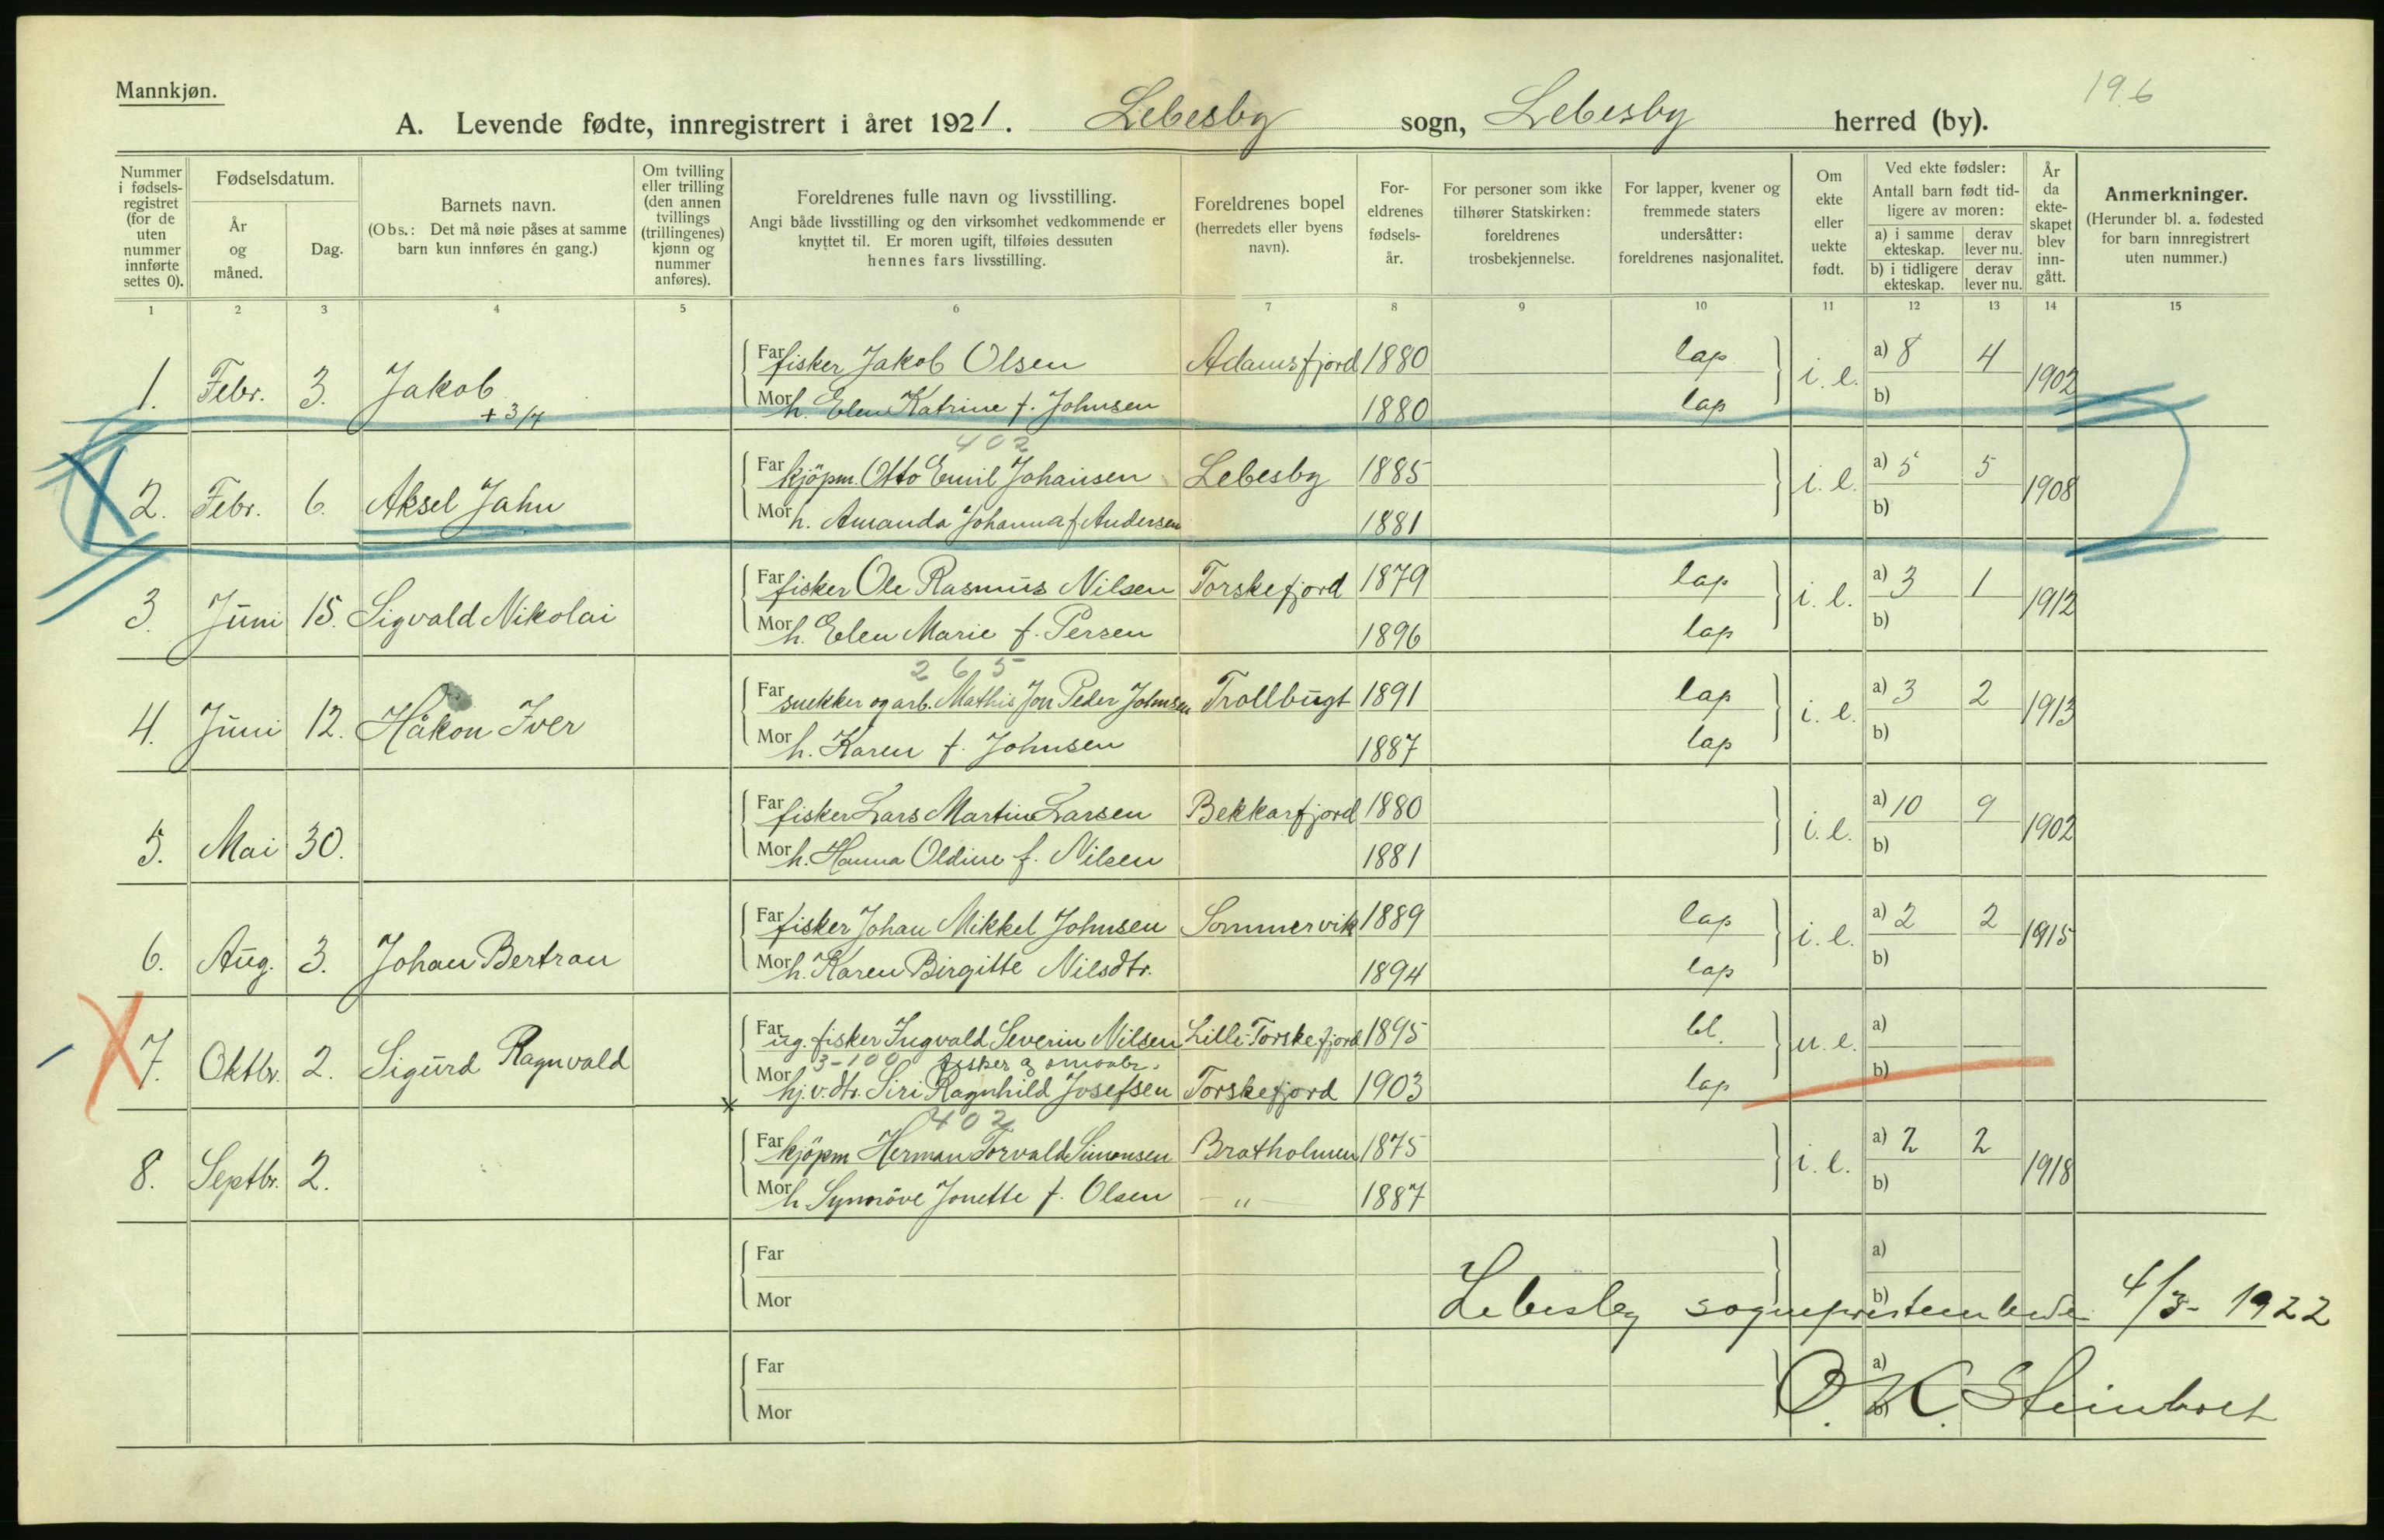 Mannkjøn.
196
A. Levende fødte, innregistrert i året 1921. Lebesby sogn, Lebesby herred (by).
Nummer i fødsels-registret (for de uten nummer innførte settes 0).
Fødselsdatum.
År og måned.
Dag.
Barnets navn.
(Obs.: Det må nøie påses at samme barn kun innføres én gang.)
Om tvilling eller trilling (den annen tvillings (trillingenes) kjønn og nummer anføres).
Foreldrenes fulle navn og livsstilling.
Angi både livsstilling og den virksomhet vedkommende er knyttet til. Er moren ugift, tilføies dessuten hennes fars livsstilling.
Foreldrenes bopel (herredets eller byens navn).
For-eldrenes fødsels-år.
For personer som ikke tilhører Statskirken: foreldrenes trosbekjennelse.
For lapper, kvener og fremmede staters undersåtter: foreldrenes nasjonalitet.
Om ekte eller uekte født.
Ved ekte fødsler: Antall barn født tid-ligere av moren:
a) i samme ekteskap. derav lever nu.
b) i tidligere ekteskap. derav lever nu.
År da ekte-skapet blev inn-gått.
Anmerkninger.
(Herunder bl. a. fødested for barn innregistrert uten nummer.)
1 2 3 4 5 6 7 8 9 10 11 12 13 14 15
1. Febr. 3. Jakob Far fisker Jakob Olsen Adamsfjord 1880 lap i. e. a) 8 4 1902
+ 3/7 Mor h. Elen Katrine f. Johnsen 1880 lap b)
402
2. Febr. 6. Aksel Jahn Far kjöpm. Otto Emil Johansen Lebesby 1885 i. e. a) 5 5 1908
Mor h. Amanda Johanna f. Andersen 1881 b)
3. Juni 15. Sigvald Nikolai Far fisker Ole Rasmus Nilsen Torskefjord 1879 lap i. e. a) 3 1 1912
Mor h. Elen Marie f. Persen 1896 lap b)
265
4. Juni 12. Håkon Iver Far snekker og arb. Mathis Jon Peder Johnsen Trollbugt 1891 lap i. e. a) 3 2 1913
Mor h. Karen f. Johnsen 1887 lap b)
5. Mai 30. Far fisker Lars Martin Larsen Bekkarfjord 1880 i. e. a) 10 9 1902
Mor h. Hanna Oldine f. Nilsen 1881 b)
6. Aug. 3. Johan Bertran Far fisker Johan Mikkel Johnsen Sommervik 1889 lap i. e. a) 2 2 1915
Mor h. Karen Birgitte Nilsdtr. 1894 lap b)
7. Oktbr. 2. Sigurd Ragnvald Far ug. fisker Ingvald Severin Nilsen Lille-Torskefjord 1895 bl. u. e. a)
3-100 fisker og smaabr.
Mor hj. v. dtr. Siri Ragnhild Josefsen Torskefjord 1903 lap b)
402
8. Septbr. 2. Far kjöpm Herman Torvald Simonsen Bratholmen 1875 i. e. a) 2 2 1918
Mor h. Synnöve Jonette f. Olsen — " — 1887 b)
Far a)
Mor b)
Lebesby sogneprestembede 4/3- 1922
Far a)
Mor b)
O. K. Steinholt